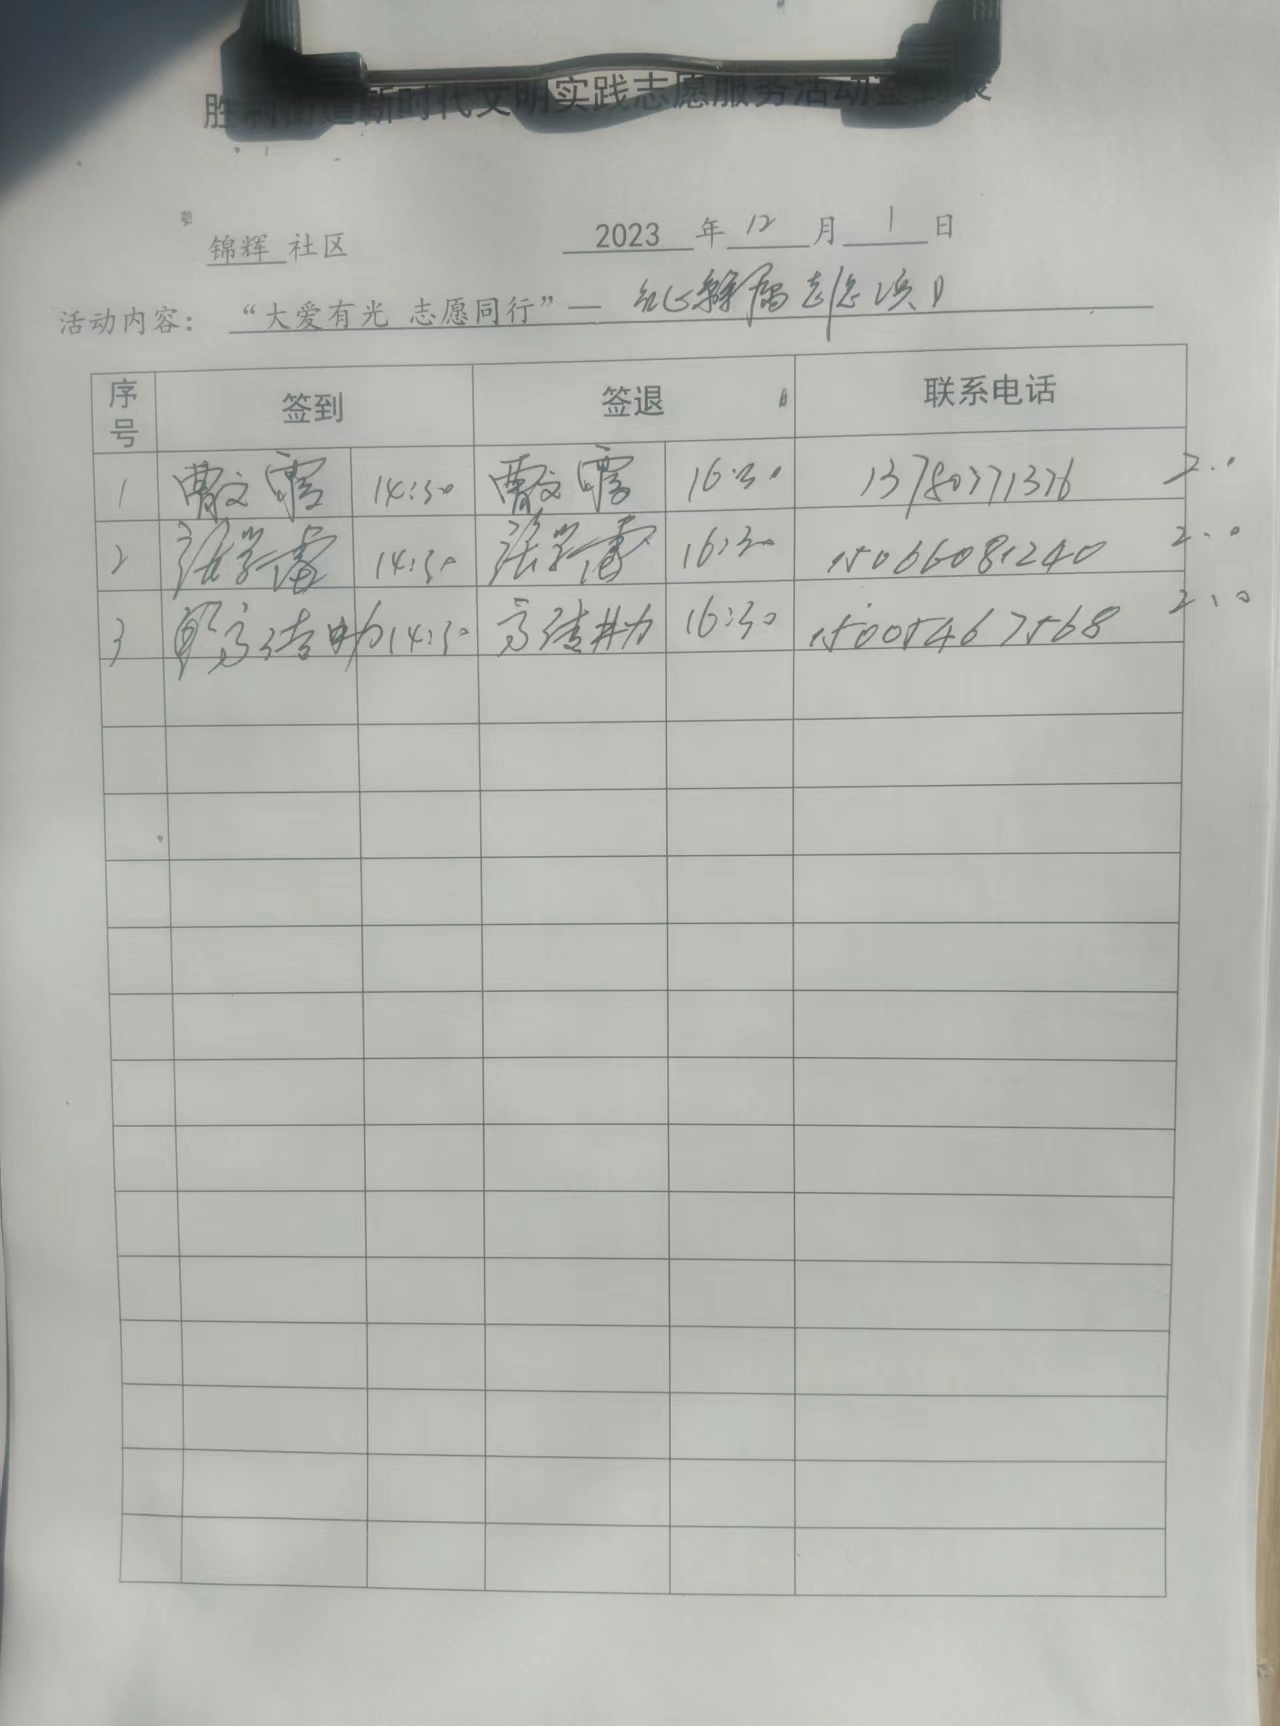 胜利街道新时代文明实践志愿服务活动签到表
锦辉 社区 2023 年 12 月 1 日
活动内容： “大爱有光 志愿同行”—
序号 签到 签退 联系电话
1 曹文霞 14:30 曹文霞 16:30 13780771376 2.0
2 张学雷 14:30 张学雷 16:30 15066081240 2.0
3 14:30 16:30 15005467568 2.0